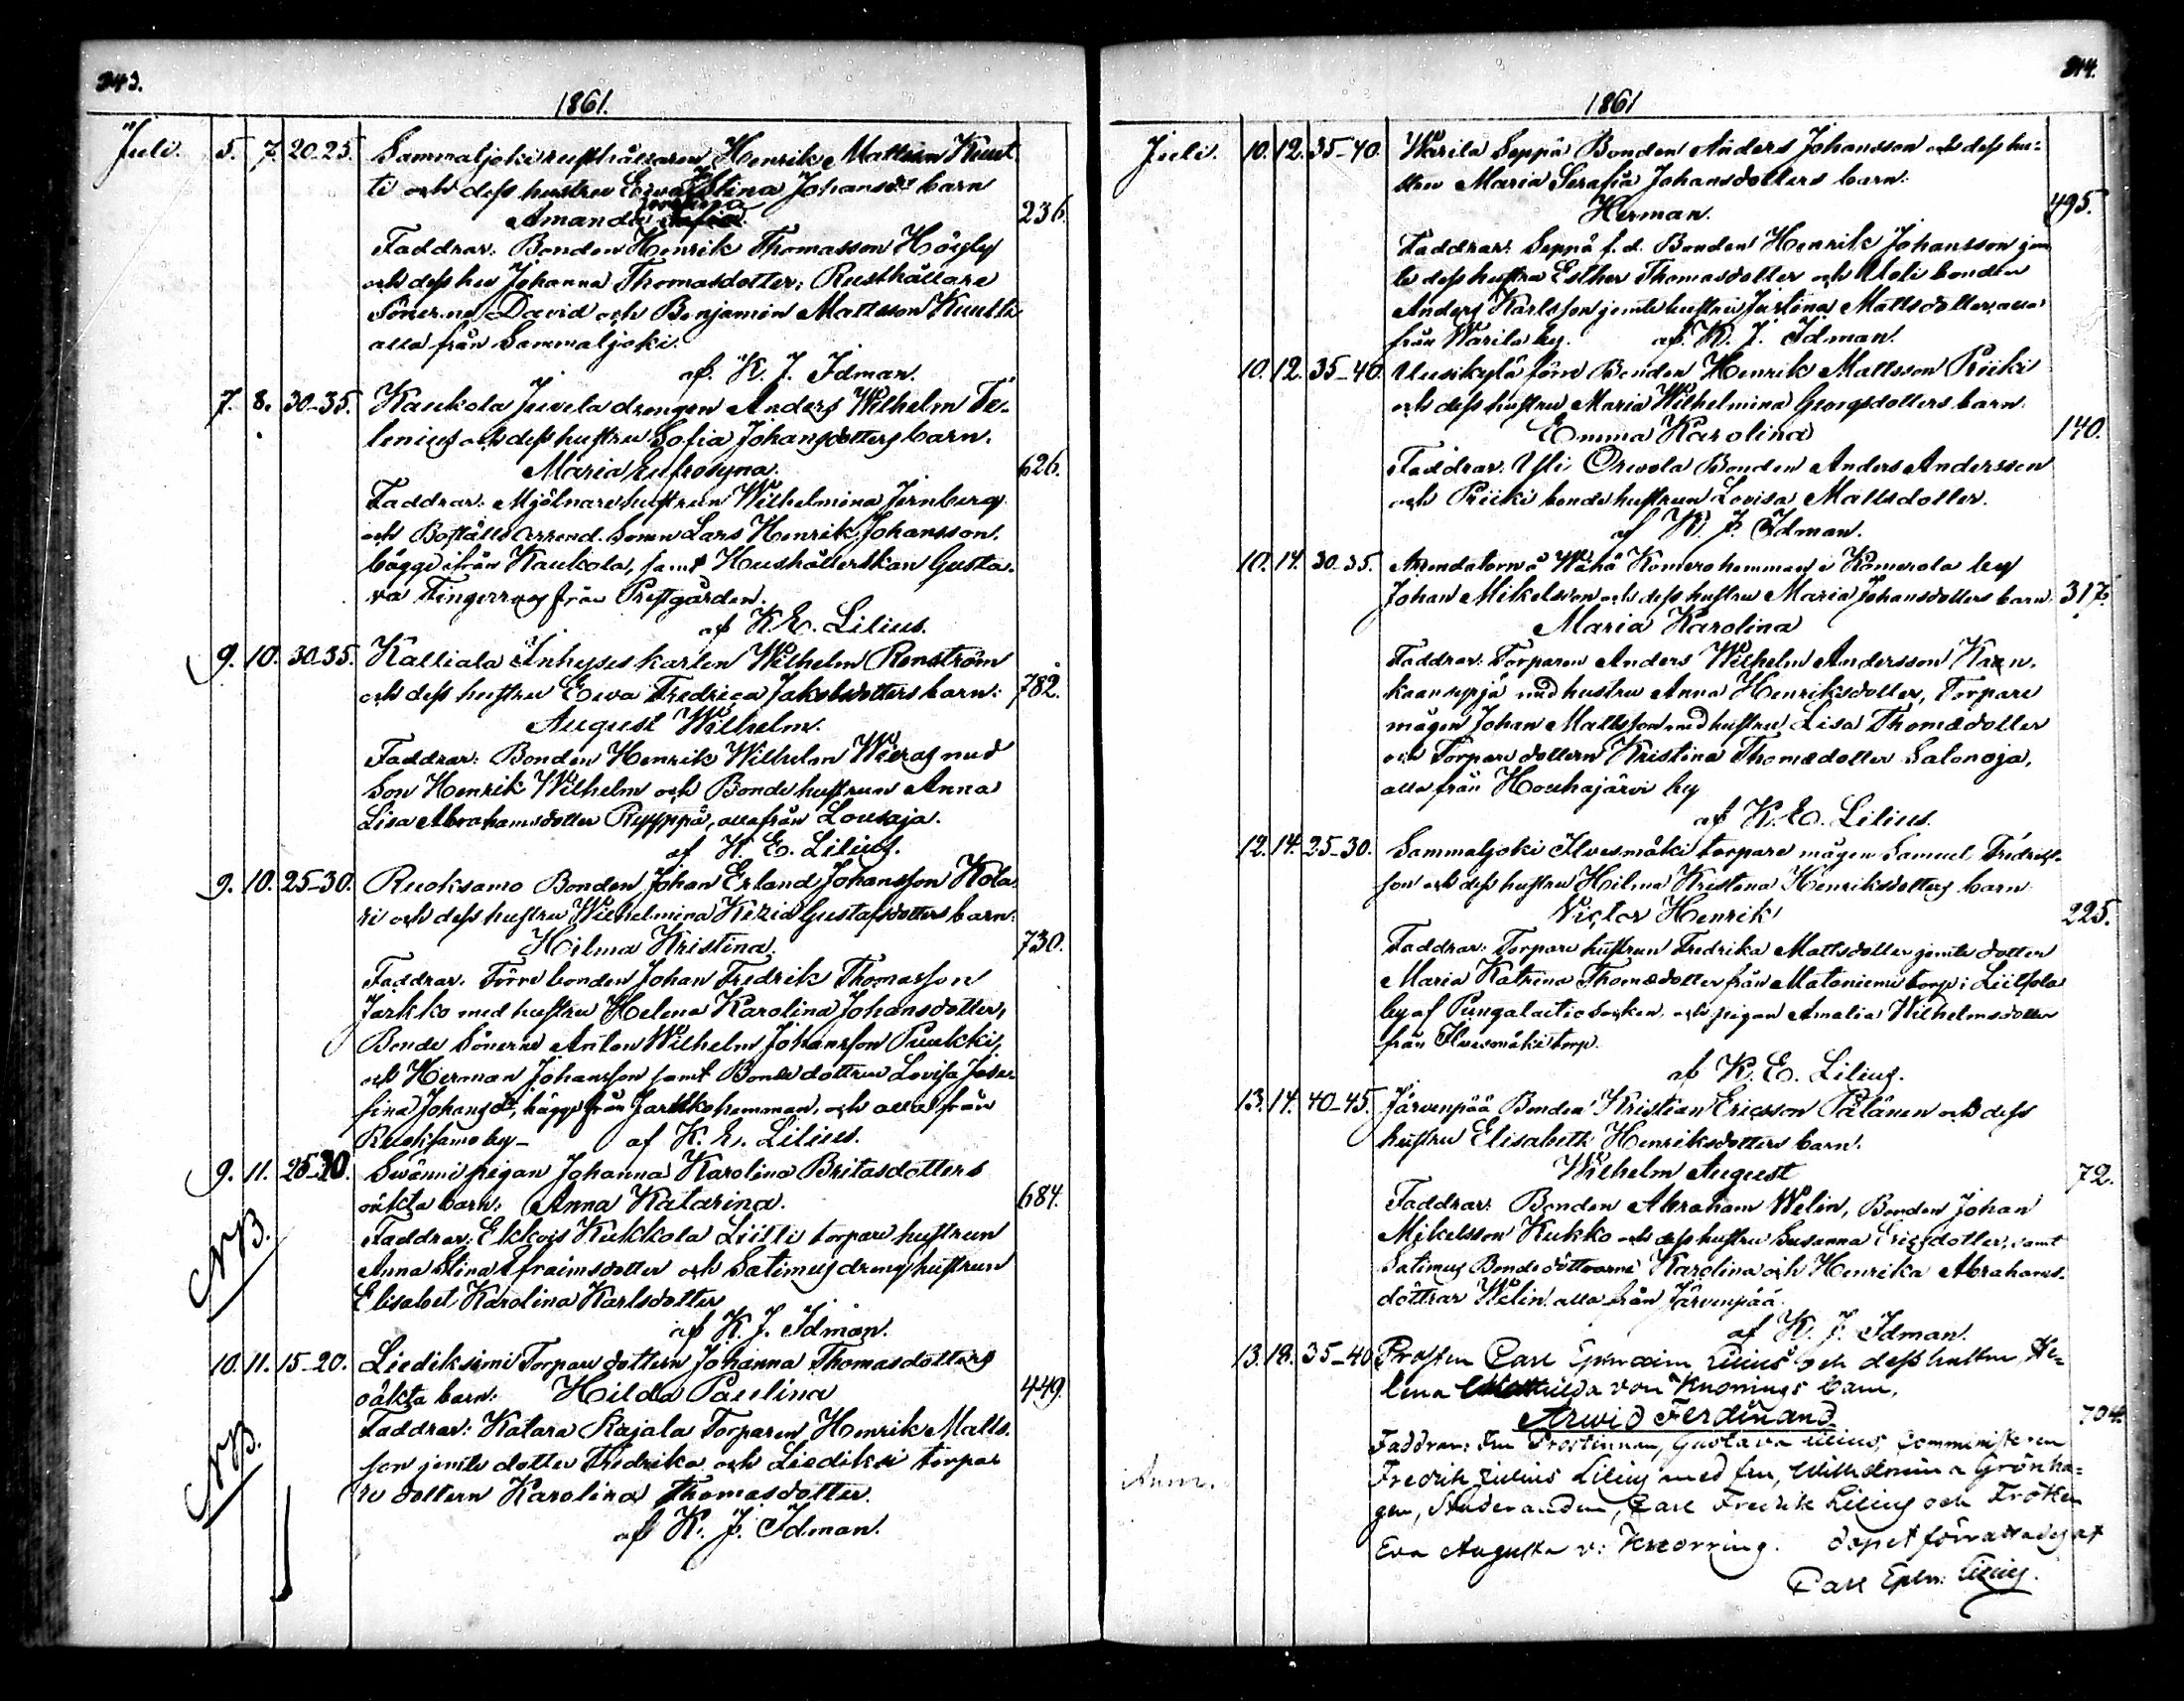 343.
1861.
Juli. 5. 7. 20-25. Sammaljoki rusthållaren Henrik Mattsson Kuut
ti och dess hustru Ewa Stina Johansdrs barn
Amanda 236.
Faddrar: Bonden Henrik Thomasson Högby
och dess hu Johanna Thomasdotter; Rusthållare
sönerne David och Benjamin Mattsson Kuutti
alla från Sammaljoki.
af. K. J. Idman.
7. 8. 30-35. Kaukola Juvela drengen Anders Wilhelm Te-
lenius och dess hustru Sofia Johansdotters barn.
Maria Eufrosyna. 626.
Faddrar: Mjölnarehustrun Wilhelmina Jernberg
och Boställs arrend. Sonen Lars Henrik Johansson,
bägge ifrån Kaukola, samt Hushållerskan Gusta-
va Fingerroos från Prestgården.
af K. E. Lilius.
9. 10. 30-35. Kalliala Inhyses karlen Wilhelm Renström
och dess hustru Ewa Fredrica Jakobsdotters barn: 782.
August Wilhelm.
Faddrar: Bonden Henrik Wilhelm Wieras med
Son Henrik Wilhelm och Bondehustrun Anna
Lisa Abrahamsdotter Ryyppä, alla från Lousaja.
af K. E. Lilius.
9. 10. 25-30. Ruoksamo Bonden Johan Erland Johansson Kola-
ri och dess hustru Wilhelmina Kezia Gustafsdotters barn:
Hilma Kristina. 730.
Faddrar: Förre bonden Johan Fredrik Thomasson
Jarkko med hustru Helena Karolina Johansdotter,
Bonde Sönerne Anton Wilhelm Johansson Puukki,
och Herman Johansson samt Bonde dottren Lovisa Jose-
fina Johansdr, bägge från Jarkko hemman, och alla från
Ruoksamo by - af K. E. Lilius.
9. 11. 25-30. Swänni pigan Johanna Karolina Britasdotters
oäkta barn: Anna Katarina. 684.
NB.
Faddrar: Ekkois Kukkola Liitti torpare hustrun
Anna Stina Efraimsdotter och Satimus drenghustrun
Elisabet Karolina Karlsdotter
af K. J. Idman.
10. 11. 15-20. Liediksimi Torpare dottern Johanna Thomasdotters
oäkta barn: Hilda Paulina 449.
NB.
Faddrar: Katara Kajala Torparen Henrik Matts-
son jemte dotter Fredrika, och Liediksi torpa-
re dottern Karolina Thomasdotter.
af K. J. Idman.
344.
1861
Juli. 10. 12. 35-40. Warila Seppä Bonden Anders Johansson och dess hu-
stru Maria Serafia Johansdotters barn:
Herman. 495.
Faddrar: Seppä f.d. Bonden Henrik Johansson jem
te dess hustru Esther Thomasdotter och bonden
Anders Karlsson jemte hustru Justina Mattsdotter, alla
från Warila by. af. K. J. Idman.
10. 12. 35-40. Uusikylä förre Bonden Henrik Mattsson Priiki
och dess hustru Maria Wilhelmina Georgsdotters barn:
Emma Karolina 140.
Faddrar: Yli Orwola Bonden Anders Andersson
och Priiki bonde hustrun Lovisa Mattsdotter.
af K. J. Idman.
10. 14. 30-35. Arrendatorn å Wähä Komero hemman i Komerola by
Johan Mikelsson och dess hustru Maria Johansdotters barn: 317.
Maria Karolina
Faddrar: Torparen Anders Wilhelm Andersson Kaan-
kaanseppä med hustru Anna Henriksdotter, Torpare
mågen Johan Mattsson med hustru Lisa Thomædotter
och Torpare dottern Kristina Thomædotter Salonoja,
alla från Houhajärvi by
af K. E. Lilius.
12. 14. 25-30. Sammaljoki Ilvesmäki torpare mågen Samuel Fredriks-
son och dess hustru Hilma Kristina Henriksdotters barn
Victor Henrik 225.
Faddrar: Torpare hustrun Fredrika Mattsdotter jemte dotter
Maria Katrina Thomædotter från Mataniemi torp i Liitsola
by af Pungalaitio socken, och pigan Amalia Wilhelmsdotter
från Ilvesmäki torp.
af K. E. Lilius.
13. 14. 40-45. Järvenpää Bonden Kristian Ericsson Pälänen och dess
hustru Elisabeth Henriksdotters barn.
Wilhelm August 72.
Faddrar: Bonden Abraham Welin, Bonden Johan
Mikelsson Kukko och dess hustru Susanna Ericsdotter, samt
Satimus Bonde döttrarne Karolina och Henrika Abrahams-
döttrar Welin alla från Järvenpää.
af K. J. Idman.
13. 18. 35-40 Prosten Carl Ephraim Lilius och dess hustru He-
lena Mathilda von Knorrings barn,
Arwid Ferdinand 704.
Faddrar: Fru Prostinnan, Gustava Lilius, Comministeren
Fredrik Julius Lilius med fru, Wilhelmina Grönha-
gen, Studeranden, Carl Fredrik Lilius och Fröken
Eva Augusta v: Knorring. Dopet förrättades af
Carl Ephr: Lilius.
Anm.